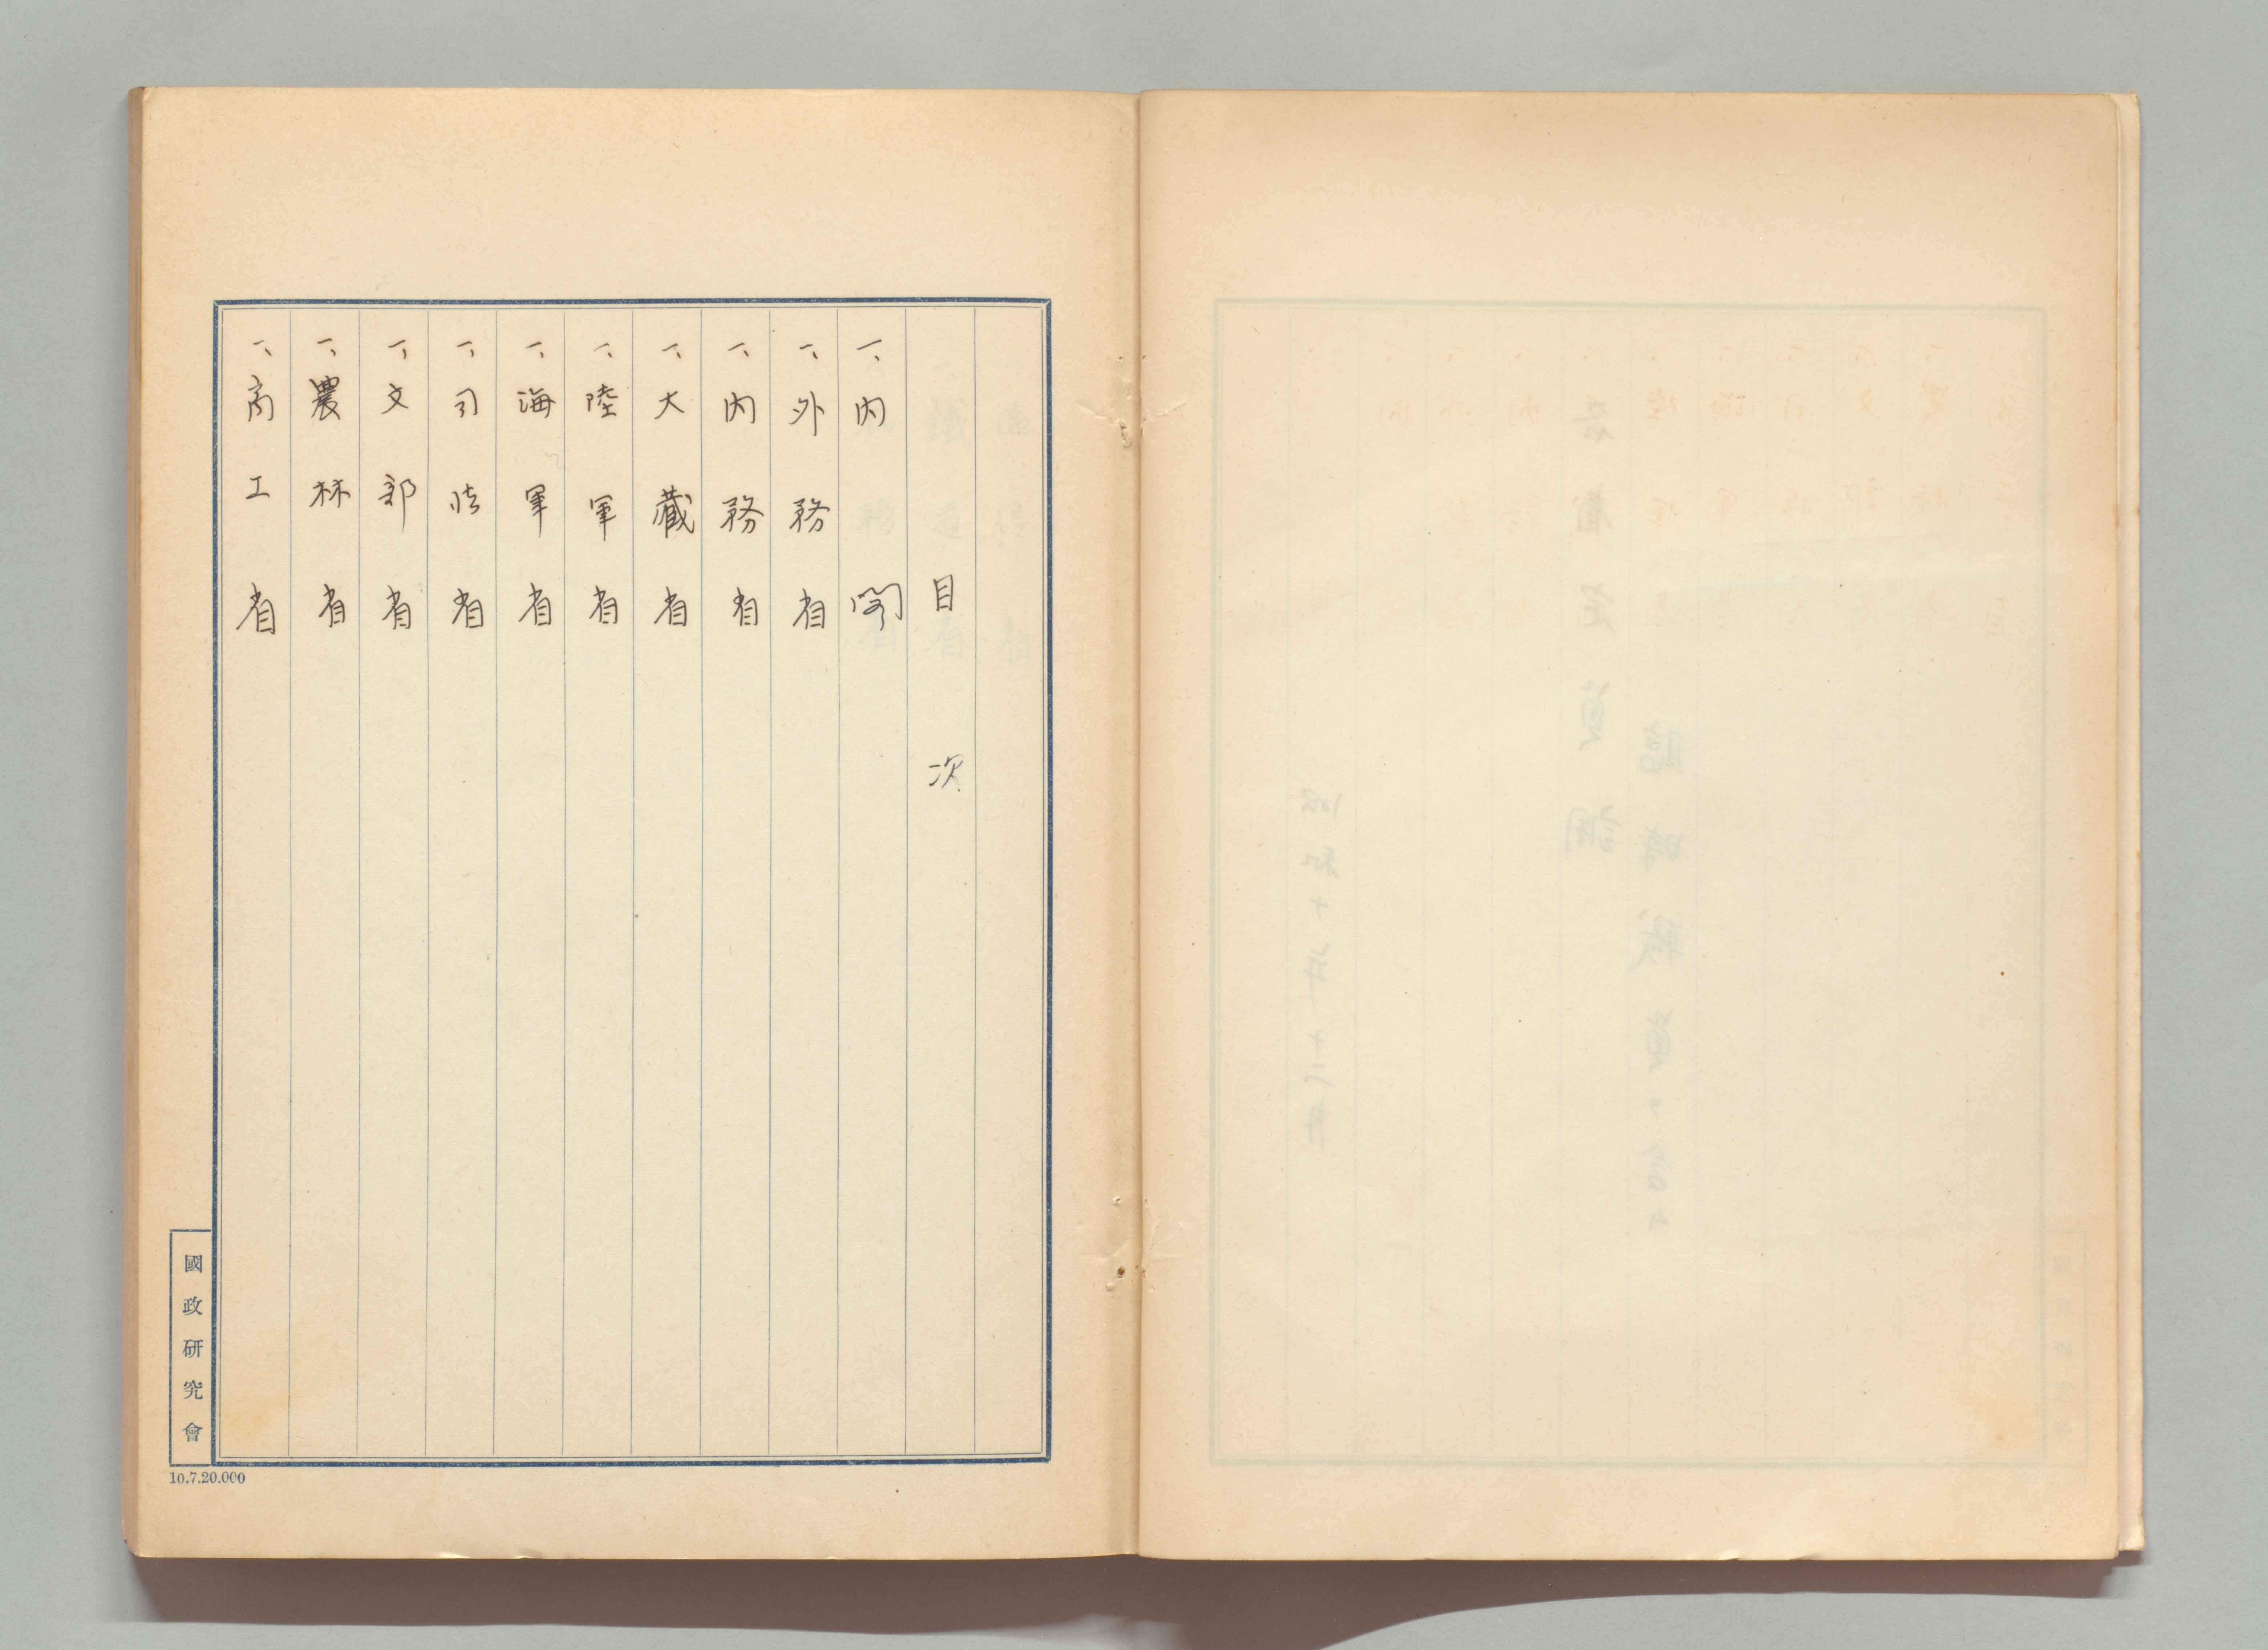 目次
一、内閣
一、外務省
一、内務省
一、大藏省
一、陸軍省
一、海軍省
一、司法省
一、文部省
一、農林省
一、商工省
國政研究會
10.7.20.000